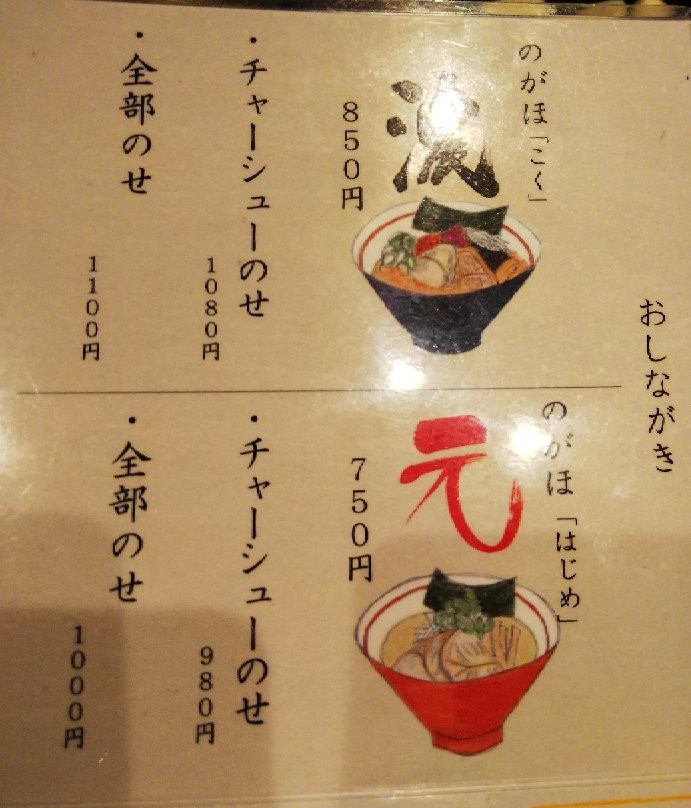 おしながき
のがほ「こく」
濃
850円
・チャーシューのせ
1080円
・全部のせ
1100円
のがほ「はじめ」
元
750円
・チャーシューのせ
980円
・全部のせ
1000円